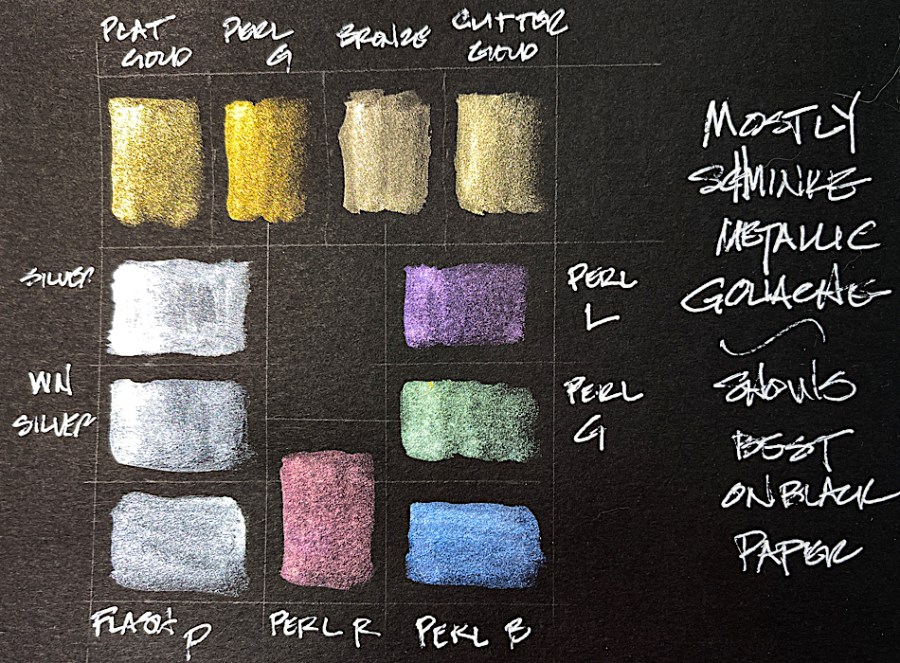 PLAT GOLD
PERL G
BRONZE
GLITTER GOLD
MOSTLY
SCHMINKE
METALLIC
GOUACHE
SHOWS
BEST
ON BLACK
PAPER
SILVER
PERL L
WN SILVER
PERL G
FLASH P
PERL R
PERL B